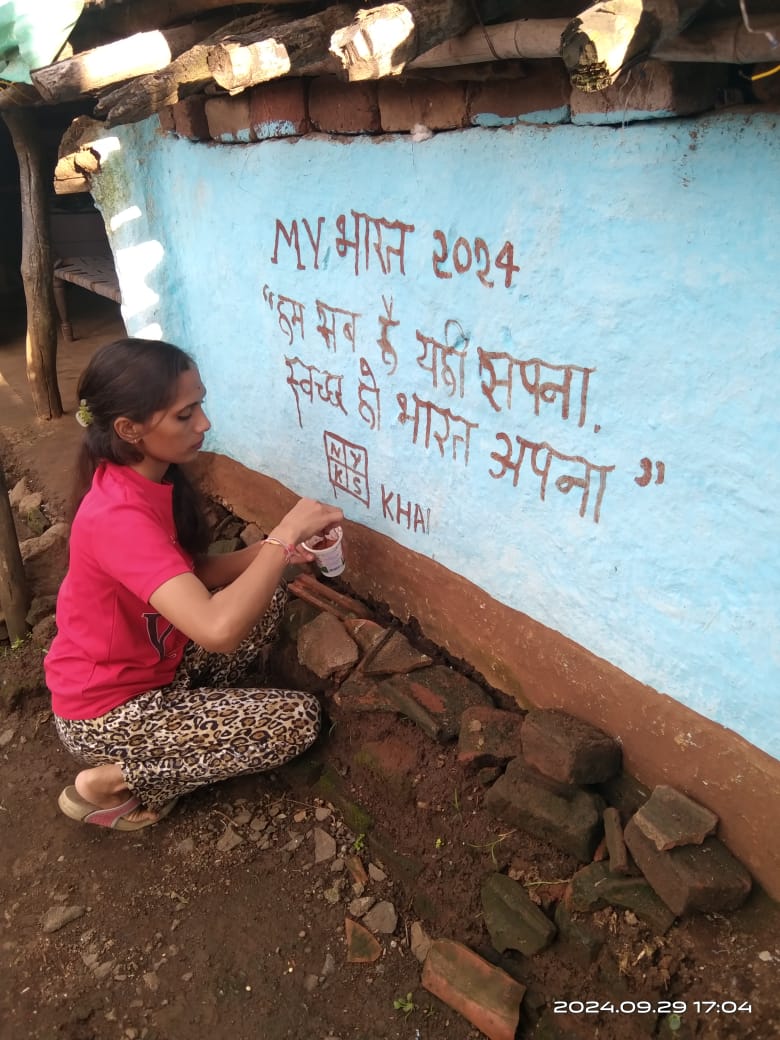 MY भारत 2024
“हम सब है यही सपना,
स्वच्छ हो भारत अपना”
NY
KS
KHA
2024.09.29 17:04